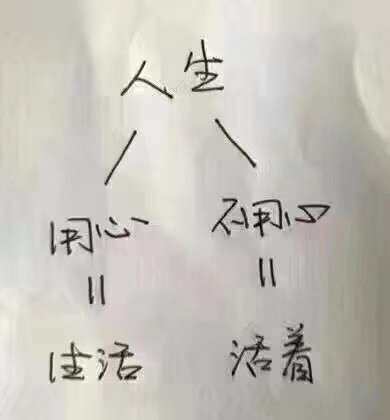 人生
用心 不用心
= =
生活 活着